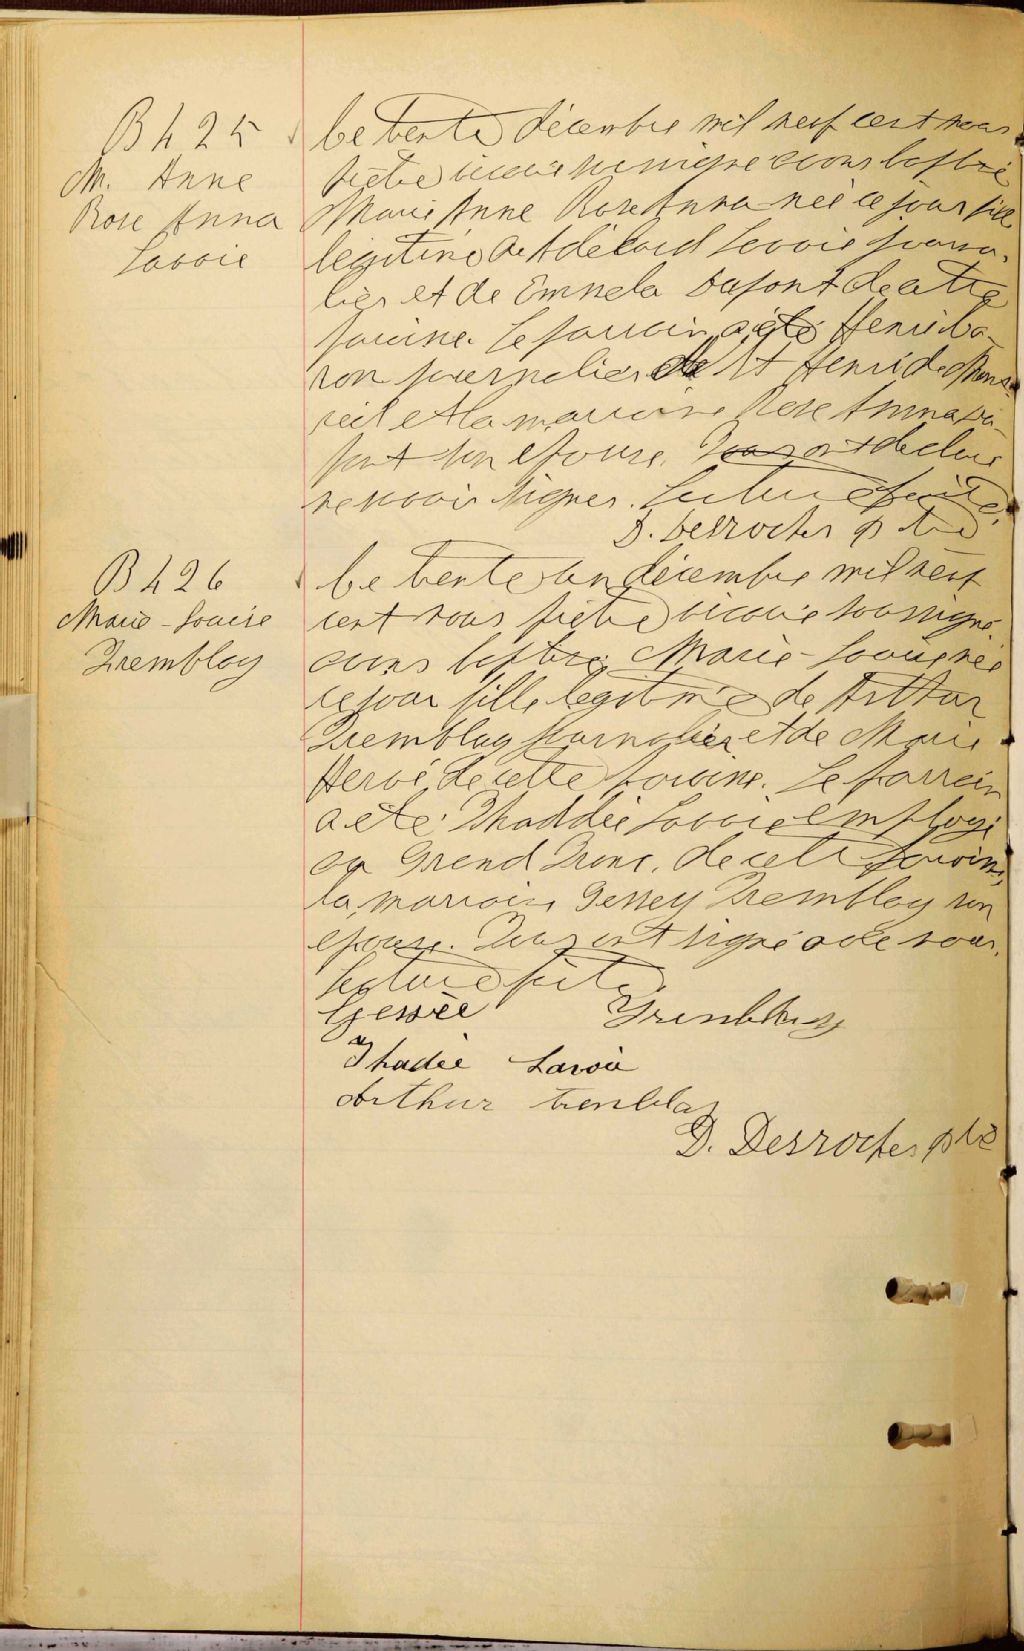 B 425
M. Anne
Rose Anna
Lavoie
Le trente décembre mil neuf cent nous
prêtre vicaire soussigné avons baptisé
Marie Anne Rose Anna née ce jour fille
légitime de Adélard Lavoie journa-
lier et de Emnela Dupont de cette
paroisse. Le parrain a été Henri Ca-
ron journalier de St Henri de Mont-
réal et la marraine Rose Anna Du-
pont son épouse. Tous ont déclaré
ne savoir signer. Lecture faite.
D. Desroches ptre
B 426
Marie-Louise
Tremblay
Le trente un décembre mil neuf
cent nous prêtre vicaire soussigné
avons baptisé Marie-Louise née
ce jour fille légitime de Arthur
Tremblay journalier et de Marie
Hervé de cette paroisse. Le parrain
a été Thaddée Lavoie employé
au Grand Tronc, de cette paroisse,
la marraine Gessey Tremblay son
épouse. Tous ont signé avec nous.
Lecture faite.
Gessée Tremblay
Thadée Lavoie
Arthur tremblay
D. Desroches ptre